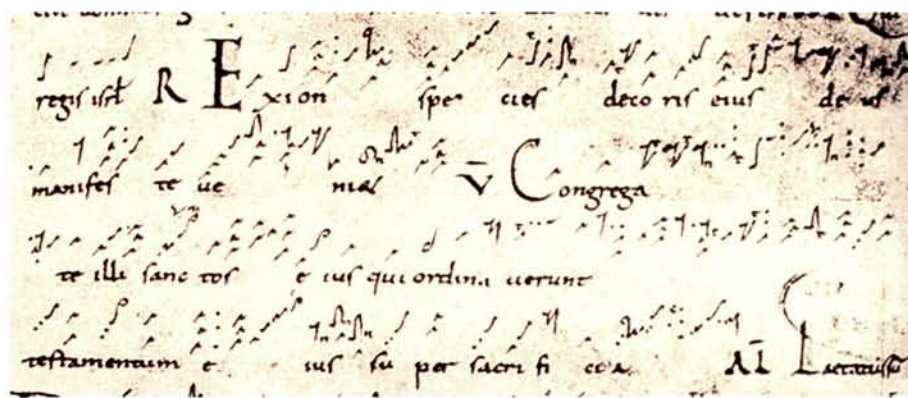 regis isrl R EX ion spe cies deco ris eius de us
manifes te ve niet V Congrega
te illi sanc tos e ius qui ordina verunt
testamentum e ius su per sacri fi cia Al Laetatus su